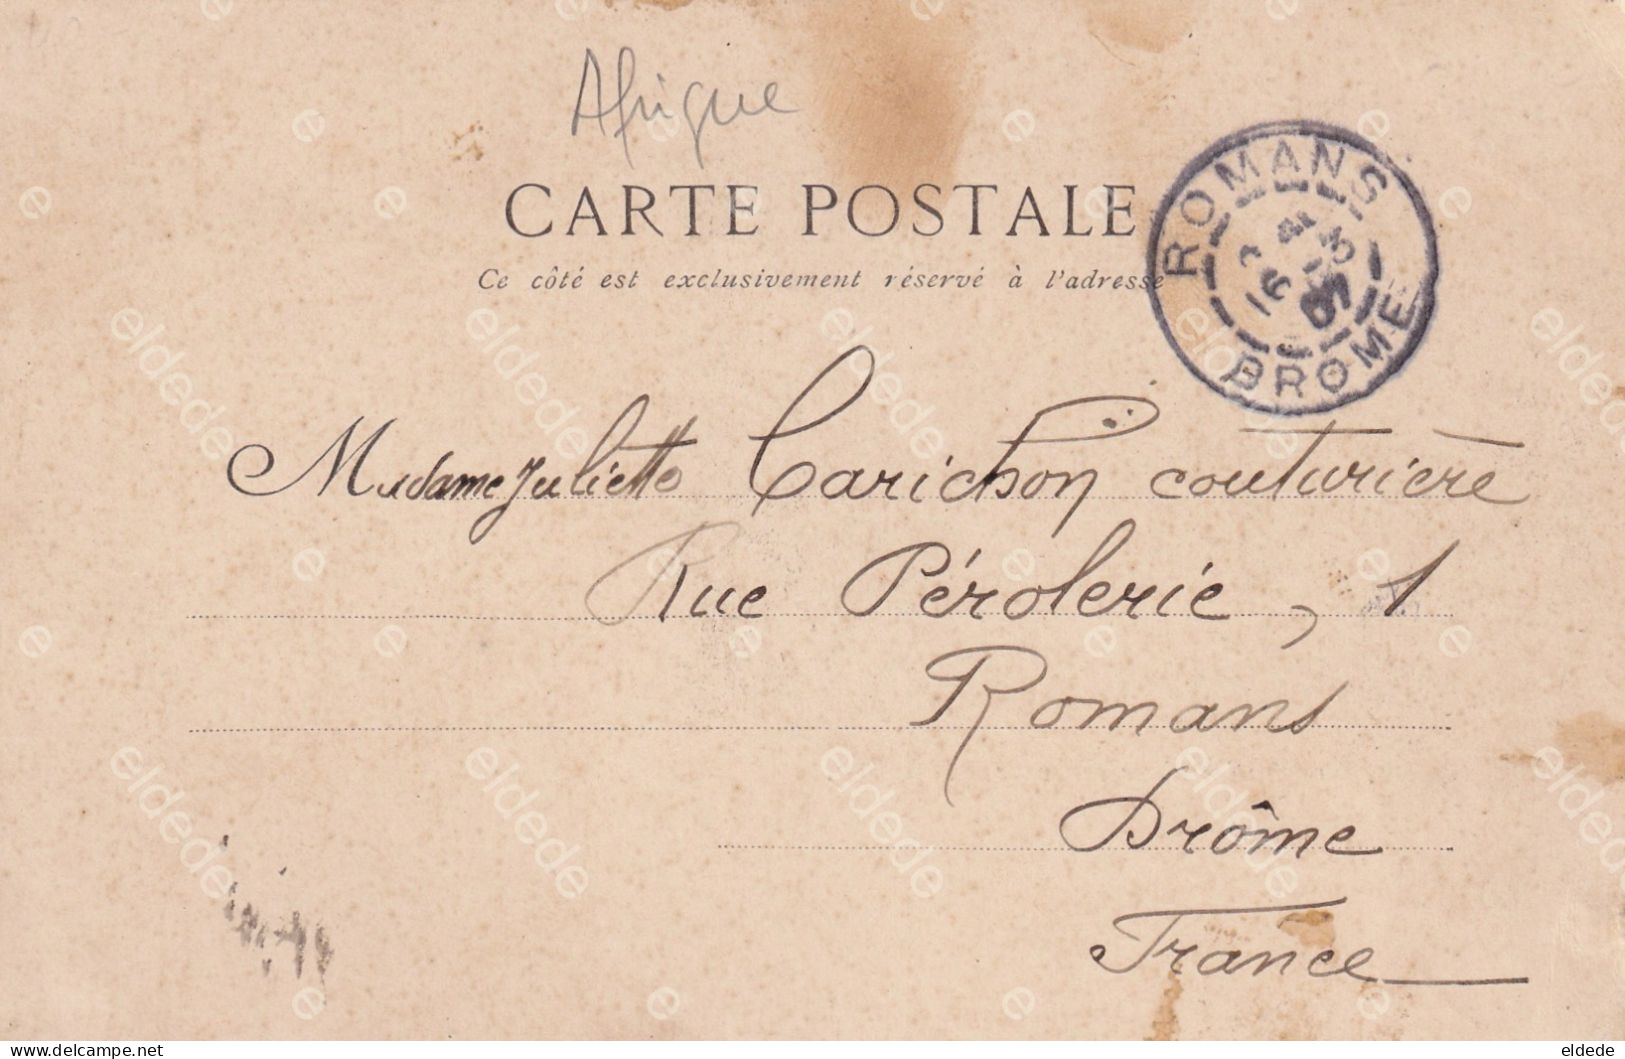 Afrique
CARTE POSTALE
Ce côté est exclusivement réservé à l'adresse
ROMANS
DROME
Madame Juliette Carichon couturière
Rue Pérolerie, 1
Romans
Drôme
France
delcampe.net
eldede